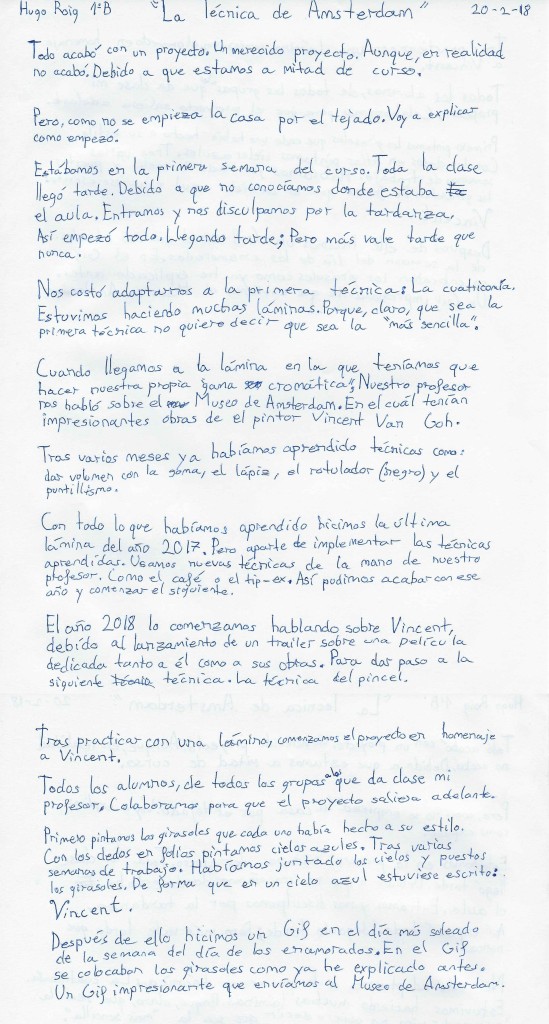 Hugo Roig 1ºB "La Técnica de Amsterdam" 20-2-18
Todo acabó con un proyecto. Un merecido proyecto. Aunque, en realidad
no acabó. Debido a que estamos a mitad de curso.
Pero, como no se empieza la casa por el tejado. Voy a explicar
como empezó.
Estábamos en la primera semana del curso. Toda la clase
llegó tarde. Debido a que no conocíamos donde estaba
el aula. Entramos y nos disculpamos por la tardanza.
Así empezó todo. Llegando tarde; Pero más vale tarde que
nunca.
Nos costó adaptarnos a la primera técnica: La cuatricomía.
Estuvimos haciendo muchas láminas. Porque, claro, que sea la
primera técnica no quiere decir que sea la "más sencilla".
Cuando llegamos a la lámina en la que teníamos que
hacer nuestra propia gama cromática; Nuestro profesor
nos habló sobre el Museo de Amsterdam. En el cuál tenían
impresionantes obras de el pintor Vincent Van Goh.
Tras varios meses ya habíamos aprendido técnicas como:
dar volumen con la goma, el lápiz, el rotulador (negro) y el
puntillismo.
Con todo lo que habíamos aprendido hicimos la última
lámina del año 2017. Pero aparte de implementar las técnicas
aprendidas. Usamos nuevas técnicas de la mano de nuestro
profesor. Como el café o el tip-ex. Así pudimos acabar con ese
año y comenzar el siguiente.
El año 2018 lo comenzamos hablando sobre Vincent,
debido al lanzamiento de un trailer sobre una película
dedicada tanto a él como a sus obras. Para dar paso a la
siguiente técnica. La técnica del pincel.
Tras practicar con una lámina, comenzamos el proyecto en homenaje
a Vincent.
Todos los alumnos, de todos los grupos a los que da clase mi
profesor, Colaboramos para que el proyecto saliera adelante.
Primero pintamos los girasoles que cada uno había hecho a su estilo.
Con los dedos en folios pintamos cielos azules. Tras varias
semanas de trabajo. Habíamos juntado los cielos y puestos
los girasoles. De forma que en un cielo azul estuviese escrito:
Vincent.
Después de ello hicimos un Gif en el día más soleado
de la semana del día de los enamorados. En el Gif
se colocaban los girasoles como ya he explicado antes.
Un Gif impresionante que enviamos al Museo de Amsterdam.